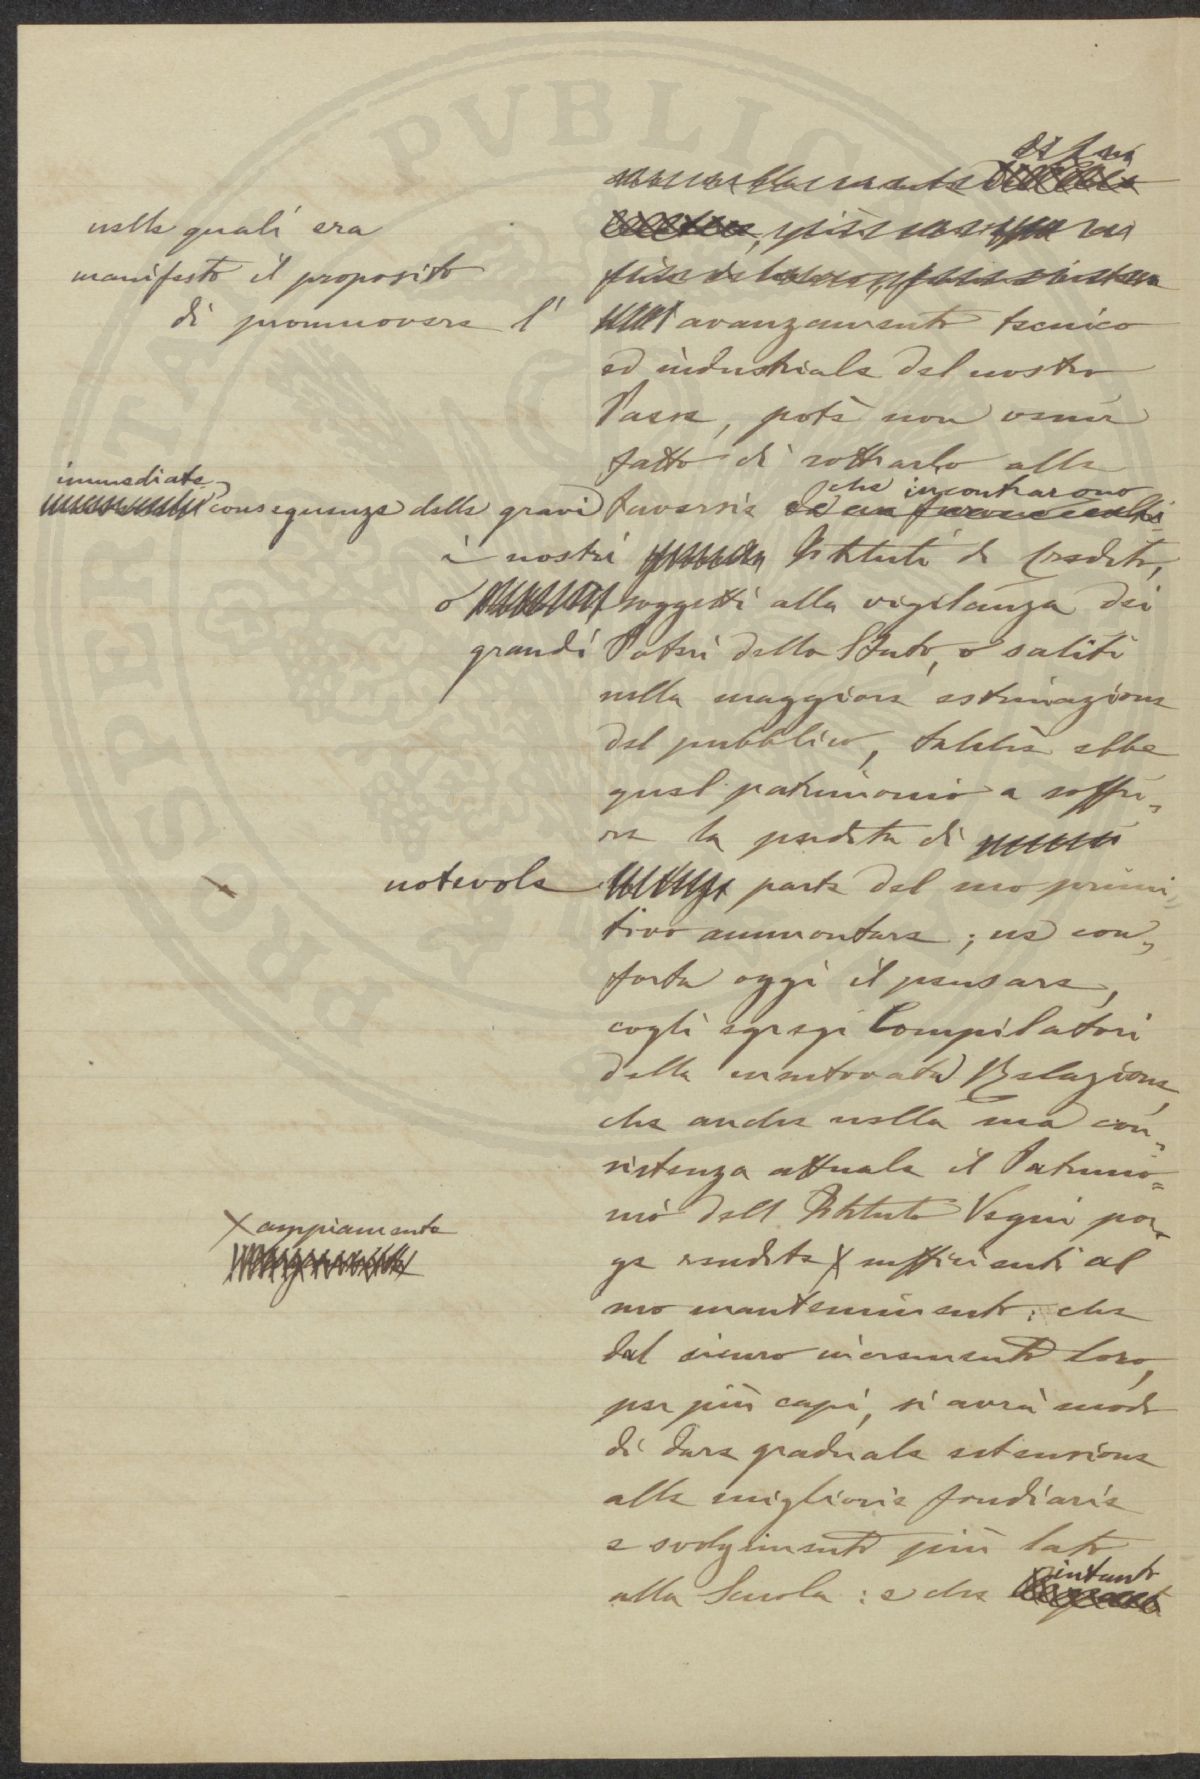 nelle quali era
manifesto il proposito
di promuovere l' avanzamento tecnico
ed industriale del nostro
Paese, potè non venir
fatto di sottrarlo alle
immediate che incontrarono
conseguenze delle gravi traversie
i nostri Istituti di Credito,
o soggetti alla vigilanza dei
grandi Poteri dello Stato, o saliti
nella maggiore estimazione
del pubblico, talchè ebbe
quel patrimonio a soffri-
re la perdita di
notevole parte del suo primi=
tivo ammontare; ne con-
forta oggi il pensare,
cogli egregi Compilatori
della mentovata Relazione,
che anche nella sua con-
sistenza attuale il Patrimo=
nio dell Istituto Vegni por-
X ampiamente
ge rendite X sufficienti al
suo mantenimento: che
dal sicuro incremento loro,
per più capi, si avrà modo
di dare graduale estensione
alle migliorie fondiarie
e svolgimento più lato
intanto
alla Scuola: e che
PVBLIC
PROSPERITA